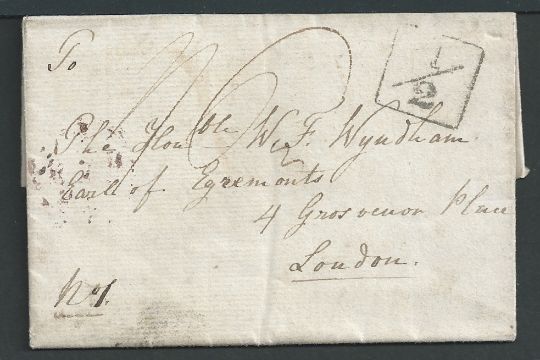 To
The Honble Wm F. Wyndham
Earl of Egremonts
4 Grosvenor Place
London.
No 1.